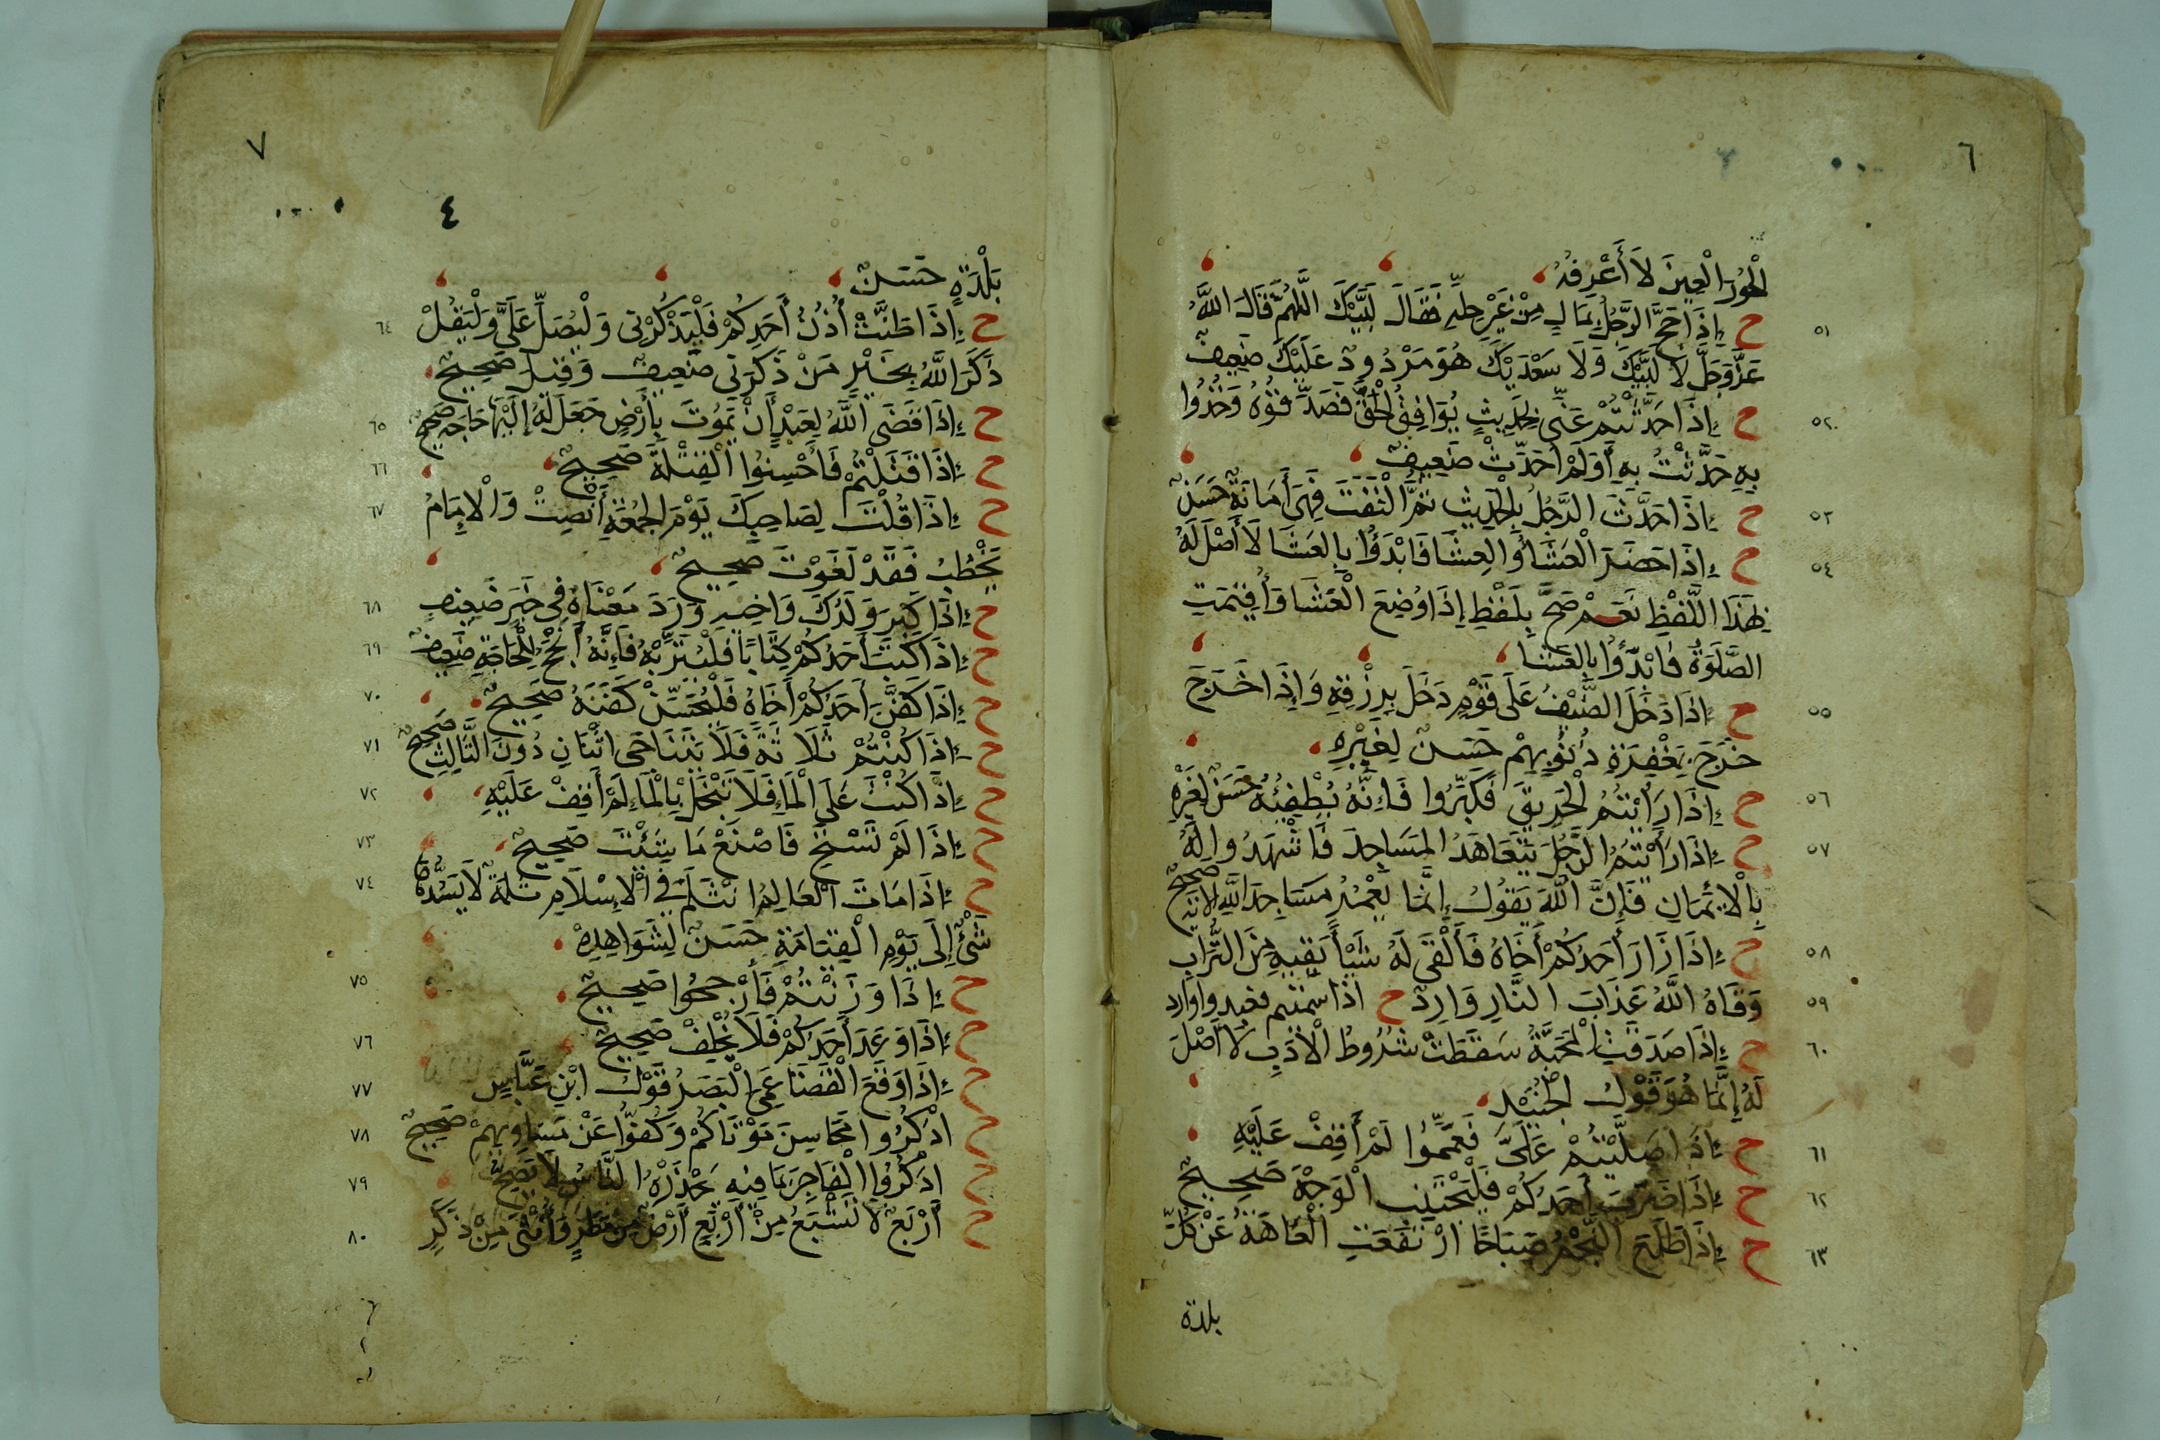 ٦
الْحُورِ الْعِينِ لَا أَعْرِفُهُ
٥١ ح إِذَا حَجَّ الرَّجُلُ بِمَالٍ مِنْ غَيْرِ حِلِّهِ فَقَالَ لَبَّيْكَ اللَّهُمَّ قَالَ اللَّهُ
عَزَّ وَجَلَّ لَا لَبَّيْكَ وَلَا سَعْدَيْكَ هُوَ مَرْدُودٌ عَلَيْكَ ضَعِيفٌ
٥٢ ح إِذَا حَدَّثْتُمْ عَنِّي بِحَدِيثٍ يُوَافِقُ الْحَقَّ فَصَدِّقُوهُ وَخُذُوا
بِهِ حَدَّثْتُ بِهِ أَوَلَمْ أُحَدِّثْ ضَعِيفٌ
٥٣ ح إِذَا حَدَّثَ الرَّجُلُ بِالْحَدِيثِ ثُمَّ الْتَفَتَ فَهِيَ أَمَانَةٌ حَسَنٌ
٥٤ ح إِذَا حَضَرَ الْعَشَا وَالْعِشَا فَابْدَؤُا بِالْعَشَا لَا أَصْلَ لَهُ
بِهَذَا اللَّفْظِ نَعَمْ صَحَّ بِلَفْظِ إِذَا وُضِعَ الْعَشَا وَأُقِيمَتِ
الصَّلَوةُ فَابْدَؤُا بِالْعَشَا
٥٥ ح إِذَا دَخَلَ الضَّيْفُ عَلَى قَوْمٍ دَخَلَ بِرِزْقِهِ وَإِذَا خَرَجَ
خَرَجَ بِمَغْفِرَةِ ذُنُوبِهِمْ حَسَنٌ لِغَيْرِهِ
٥٦ ح إِذَا رَأَيْتُمُ الْحَرِيقَ فَكَبِّرُوا فَإِنَّهُ يُطْفِئُهُ حَسَنٌ لِغَيْرِهِ
٥٧ ح إِذَا رَأَيْتُمُ الرَّجُلَ يَتَعَاهَدُ الْمَسَاجِدَ فَاشْهَدُوا لَهُ
بِالْإِيمَانِ فَإِنَّ اللَّهَ يَقُولُ إِنَّمَا يَعْمُرُ مَسَاجِدَ اللَّهِ الْآيَةِ صَحِيحٌ
٥٨ ح إِذَا زَارَ أَحَدُكُمْ أَخَاهُ فَأَلْقَى لَهُ شَيْأً يَقِيهِ مِنَ التُّرَابِ
٥٩ وَقَاهُ اللَّهُ عَذَابَ النَّارِ وَارِدٌ ح اذا سميتم فعبدوا وارد
٦٠ ح إِذَا صَدَقَتِ الْمَحَبَّةُ سَقَطَتْ شُرُوطُ الْأَدَبِ لَا أَصْلَ
لَهُ إِنَّمَا هُوَ قَوْلُ الْجُنَيْدِ
٦١ ح إِذَا صَلَّيْتُمْ عَلَيَّ فَعَمِّمُوا لَمْ أَقِفْ عَلَيْهِ
٦٢ ح إِذَا ضَرَبَ أَحَدُكُمْ فَلْيَجْتَنِبِ الْوَجْهَ صَحِيحٌ
٦٣ ح إِذَا طَلَعَ النَّجْمُ صَبَاحًا ارْتَفَعَتِ الْعَاهَةُ عَنْ كُلِّ
بلدة
٧
٤
بَلْدَةٍ حَسَنٌ
٦٤ ح إِذَا طَنَّتْ أُذُنُ أَحَدِكُمْ فَلْيَذْكُرْنِي وَلْيُصَلِّ عَلَيَّ وَلْيَقُلْ
ذَكَرَ اللَّهُ بِخَيْرٍ مَنْ ذَكَرَنِي ضَعِيفٌ وَقِيلَ صَحِيحٌ
٦٥ ح إِذَا قَضَى اللَّهُ لِعَبْدٍ أَنْ يَمُوتَ بِأَرْضٍ جَعَلَ لَهُ إِلَيْهَا حَاجَةً صَحِيحٌ
٦٦ ح إِذَا قَتَلْتُمْ فَأَحْسِنُوا الْقِتْلَةَ صَحِيحٌ
٦٧ ح إِذَا قُلْتَ لِصَاحِبِكَ يَوْمَ الْجُمُعَةِ أَنْصِتْ وَالْإِمَامُ
يَخْطُبُ فَقَدْ لَغَوْتَ صَحِيحٌ
٦٨ ح إِذَا كَبِرَ وَلَدُكَ وَاخِهِ وَرَدَ مَعْنَاهُ فِي خَبَرٍ ضَعِيفٍ
٦٩ ح إِذَا كَتَبَ أَحَدُكُمْ كِتَابًا فَلْيُتَرِّبْهُ فَإِنَّهُ أَنْجَحُ لِلْحَاجَةِ ضَعِيفٌ
٧٠ ح إِذَا كَفَّنَ أَحَدُكُمْ أَخَاهُ فَلْيُحَسِّنْ كَفَنَهُ صَحِيحٌ
٧١ ح إِذَا كُنْتُمْ ثَلَاثَةً فَلَا يَتَنَاجَى اثْنَانِ دُونَ الثَّالِثِ صَحِيحٌ
٧٢ ح إِذَا كُنْتَ عَلَى الْمَاءِ فَلَا تَبْخَلْ بِالْمَاءِ لَمْ أَقِفْ عَلَيْهِ
٧٣ ح إِذَا لَمْ تَسْتَحِ فَاصْنَعْ مَا شِئْتَ صَحِيحٌ
٧٤ ح إِذَا مَاتَ الْعَالِمُ انْثَلَمَ فِي الْإِسْلَامِ ثَلْمَةٌ لَا يَسُدُّهَا
شَيْءٌ إِلَى يَوْمِ الْقِيَامَةِ حَسَنٌ لِشَوَاهِدِهْ
٧٥ ح إِذَا وَزَنْتُمْ فَأَرْجِحُوا صَحِيحٌ
٧٦ ح إِذَا وَعَدَ أَحَدُكُمْ فَلَا يُخْلِفْ صَحِيحٌ
٧٧ ح إِذَا وَقَعَ الْقَضَا عَمِيَ الْبَصَرُ قَوْلُ ابْنِ عَبَّاسٍ
٧٨ ح اذْكُرُوا مَحَاسِنَ مَوْتَاكُمْ وَكُفُّوا عَنْ مَسَاوِيهِمْ صَحِيحٌ
٧٩ ح اذْكُرُوا الْفَاجِرَ بِمَا فِيهِ يَحْذَرْهُ النَّاسُ لَا يَصِحُّ
٨٠ ح أَرْبَعٌ لَا تَشْبَعُ مِنْ أَرْبَعٍ أَرْضٌ مِنْ مَطَرٍ وَأُنْثَى مِنْ ذَكَرٍ